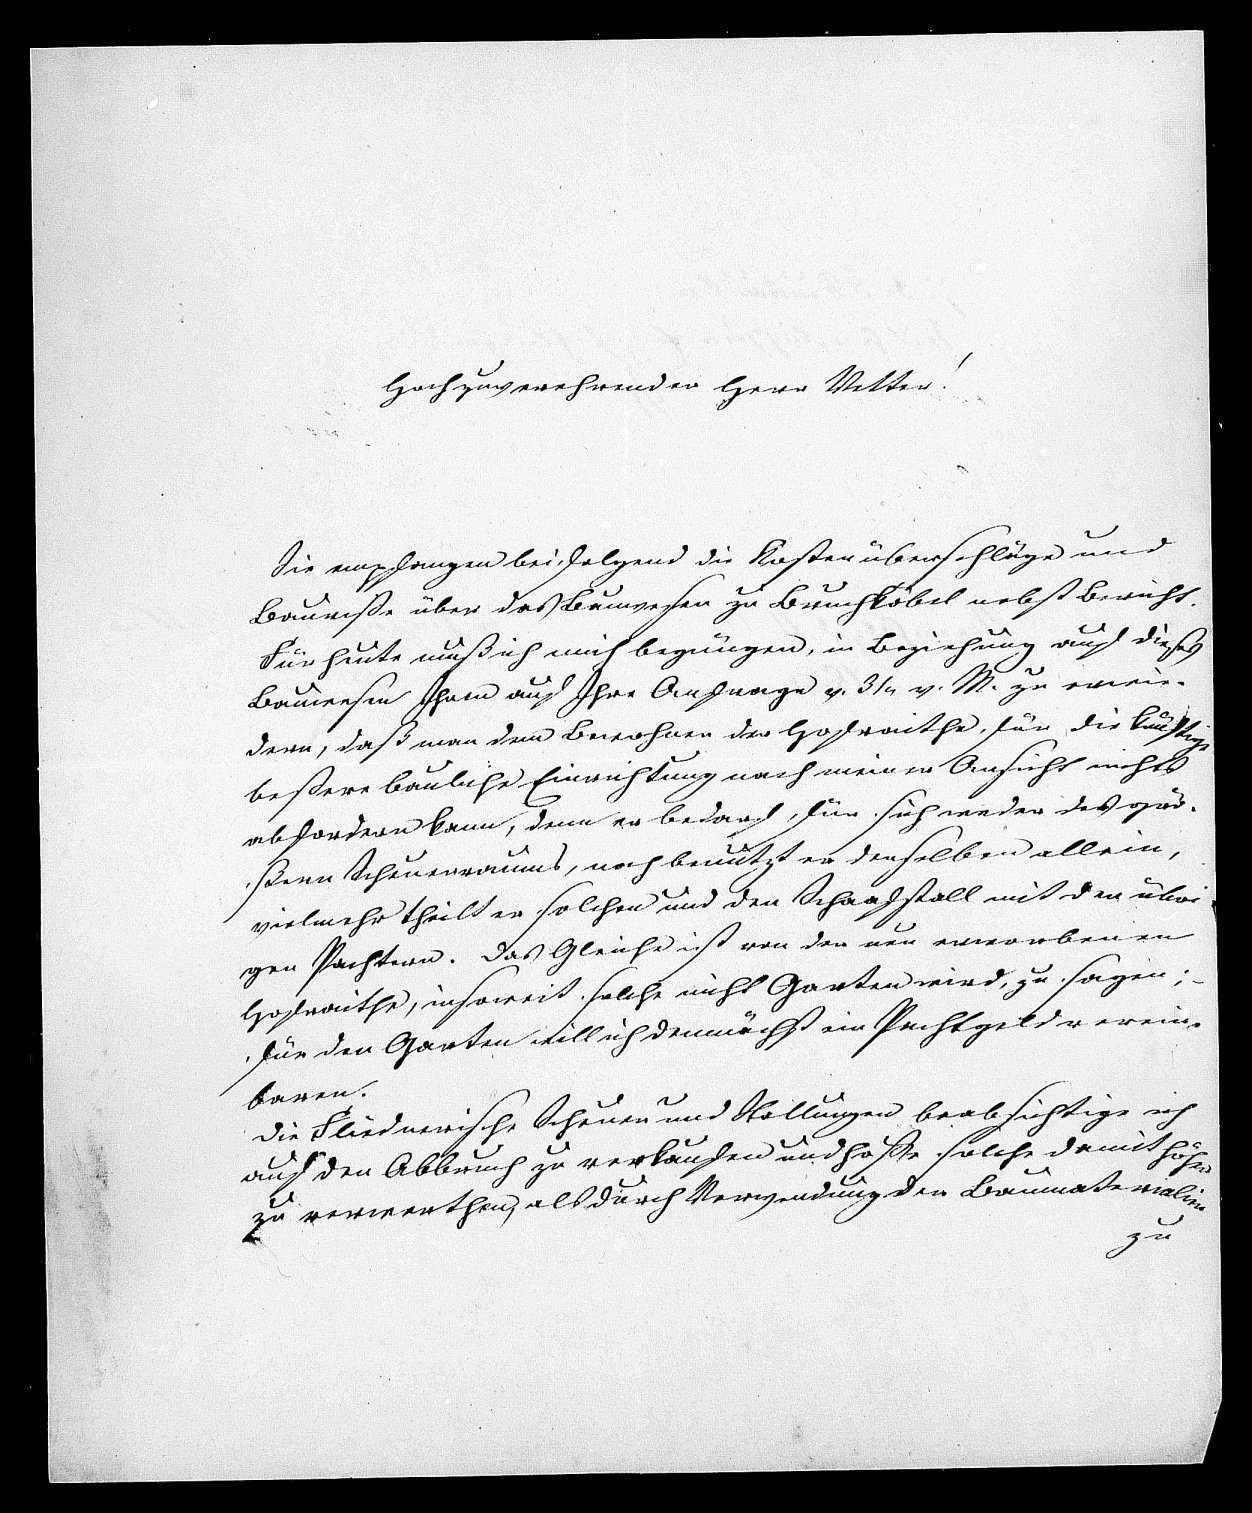 Hochzuverehrender Herr Vetter!
Sie empfangen beifolgend die Kostenüberschläge und
Bauriße über das Bauwesen zu Bruchköbel nebst Bericht.
Für heute muß ich mich begnügen, in Beziehung auf dieses
Bauwesen Ihnen auf Ihre Anfrage v. 31n v. M. zu erwie-
dern, daß man dem Bewohner der Hofraithe, für die künftige
beßere bauliche Einrichtung nach meiner Ansicht nichts
abfordern kann, denn er bedarf für sich weder des grö-
ßern Scheuerraums, noch benutzt er denselben allein,
vielmehr theilt er solchen und den Schaafstall mit den übri-
gen Pachtern. Das Gleiche ist von der neu erworbenen
Hofraithe, insoweit solche nicht Garten wird, zu sagen; –
für den Garten will ich demnächst ein Pachtgeld verein-
baren.
Die Fliednerische Scheuer und Stallungen beabsichtige ich
auf den Abbruch zu verkaufen und hoffe solche damit höher
zu verwerthen, als durch Verwendung der Baumaterialien
zu